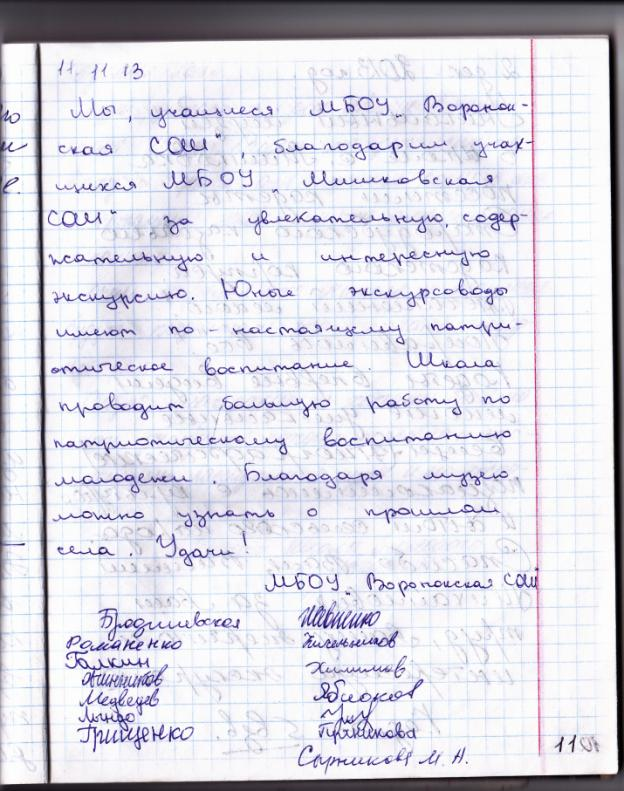 11.11.13
Мы, учащиеся МБОУ „Воронок-
ская СОШ", благодарим учах-
щихся МБОУ „Мишковская
СОШ" за увлекательную, содер-
жательную и интересную
экскурсию. Юные экскурсоводы
имеют по-настоящему патри-
отическое воспитание. Школа
проводит большую работу по
патриотическому воспитанию
молодежи. Благодаря музею,
можно узнать о прошлом
села. Удачи!
МБОУ „Воронокская СОШ
Бродилевская Шевненко
Романенко Кисельников
Галкин
Овинников
Медведев
Лындо
Грищенко Пряникова
Сытникова М. Н.
110